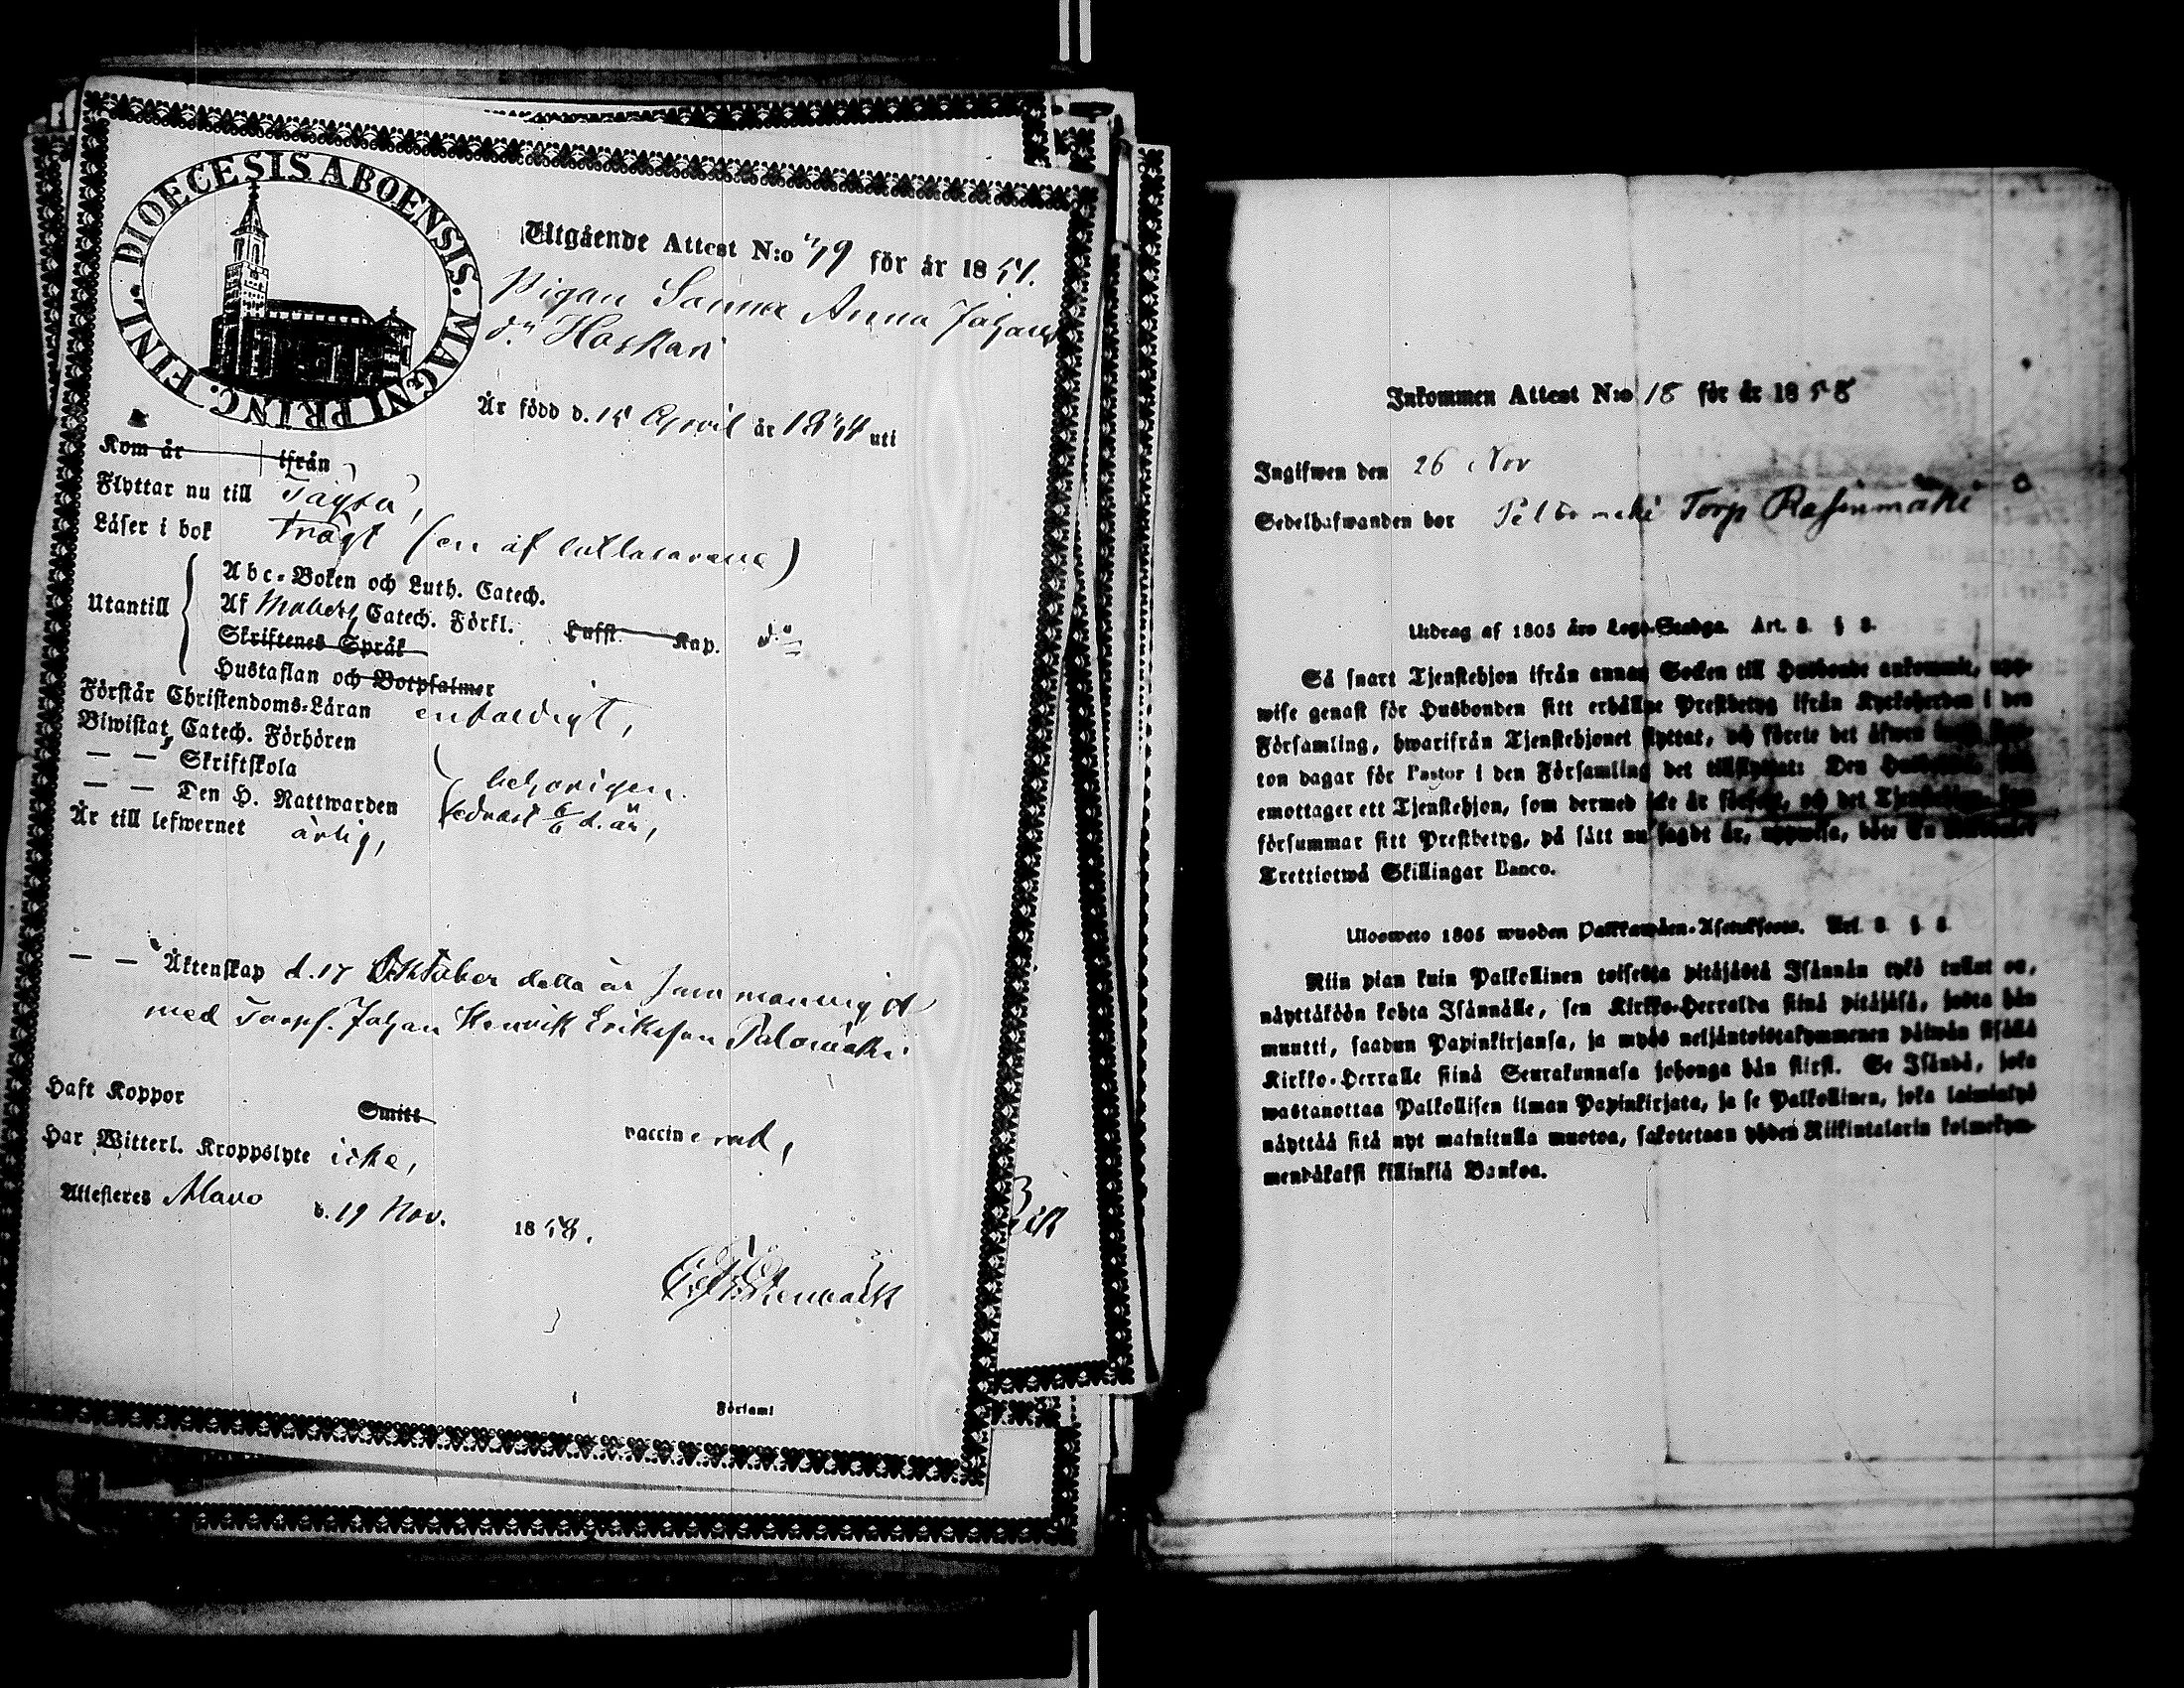 DIOECESIS ABOENSIS. MAGNI PRINC. FINL.
Utgående Attest N:o 49 för år 1858.
Pigan Sanna Anna Johans
dr
Är född d. 15 April år uti
Kom år ifrån
Flyttar nu till Töysä,
Läser i bok trögt (en af lättlärarene)
Utantill
Abc-Boken och Luth. Catech.
Af Mobergs Catech. Förkl. Luffl. Kap. d:o
Skriftenes Språk
Hustaflan och Botpsalmer
Förstår Christendoms-Läran enfaldigt,
Biwistat, Catech. Förhören
— — Skriftskola
— — Den H. Nattwarden
behörigen.
sednast 6/6 d. år,
Är till lefwernet ärlig,
— — Äktenskap d. 17 Oktober detta år sammanwigd
med Torp. Johan Henrik Eriksson Palomäki
Haft Koppor Smitt vaccinerad,
Har Witterl. Kroppslyte icke,
Attesteras Alavo d. 19 Nov. 1858.
Församl
Inkommen Attest N:o 18 för år 1858
Ingifwen den 26 Nov
Sedelhafwanden bor Peltomäki Torp Rasinmäki
Utdrag af 1805 års Lego-Stadga. Art. 8. § 8.
Så snart Tjenstehjon ifrån annan Socken till Husbonde ankommit, upp-
wise genast för Husbonden sitt erhållne Prestbetyg ifrån Kyrkoherden i den
Församling, hwarifrån Tjenstehjonet flyttat, och förete det äfwen
ton dagar för Pastor i den Församling det tillflyttat: Den
emottager ett Tjenstehjon, som dermed icke är försedt, och det Tjenstehjon, som
försummar sitt Prestbetyg, på sätt nu sagdt är, uppwisa, böte En Riksdaler
Trettiotwå Skillingar Banco.
Ulosweto 1805 wuoden Palkkawäen-Asetuksesta. Art. 8. § 8.
Niin pian kuin Palkollinen toisesta pitäjästä Isännän tykö tullut on,
näyttäköön kohta Isännälle, sen Kirkko-Herralda siinä pitäjäsä, josta hän
muutti, saadun Papinkirjansa, ja myös neljäntoistakymmenen päiwän sisällä
Kirkko-Herralle siinä Seurakunnasa johonga hän siirsi. Se Isändä, joka
wastanottaa Palkollisen ilman Papinkirjata, ja se Palkollinen, joka laiminlyö
näyttää sitä nyt mainitulla muotoa, sakotetaan yhden Riikintalarin kolmekym-
mendäkaksi killinkiä Bankoa.